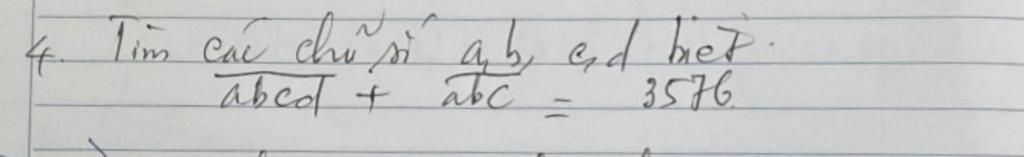 4. Tìm các chữ số a, b, c, d biết.
abcd + abc = 3576.